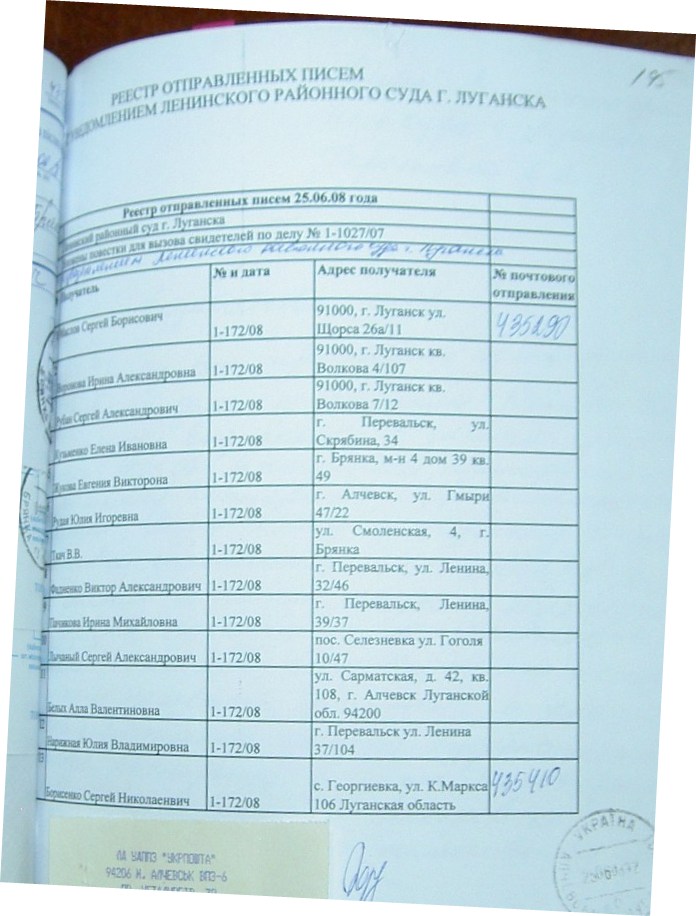 195
РЕЕСТР ОТПРАВЛЕННЫХ ПИСЕМ
УВЕДОМЛЕНИЕМ ЛЕНИНСКОГО РАЙОННОГО СУДА Г. ЛУГАНСКА
Реестр отправленных писем 25.06.08 года
районный суд г. Луганска
повестки для вызова свидетелей по делу № 1-1027/07
Получатель № и дата Адрес получателя № почтового
отправления
Сергей Борисович 1-172/08 91000, г. Луганск ул.
Щорса 26а/11 435290
Ирина Александровна 1-172/08 91000, г. Луганск кв.
Волкова 4/107
Рубан Сергей Александрович 1-172/08 91000, г. Луганск кв.
Волкова 7/12
Кузьменко Елена Ивановна 1-172/08 г. Перевальск, ул.
Скрябина, 34
Евгения Викторона 1-172/08 г. Брянка, м-н 4 дом 39 кв.
49
Рудая Юлия Игоревна 1-172/08 г. Алчевск, ул. Гмыри
47/22
Ткач В.В. 1-172/08 ул. Смоленская, 4, г.
Брянка
Виктор Александрович 1-172/08 г. Перевальск, ул. Ленина,
32/46
Ирина Михайловна 1-172/08 г. Перевальск, Ленина,
39/37
10
Сергей Александрович 1-172/08 пос. Селезневка ул. Гоголя
10/47
11
Белых Алла Валентиновна 1-172/08 ул. Сарматская, д. 42, кв.
108, г. Алчевск Луганской
обл. 94200
12
Нарижная Юлия Владимировна 1-172/08 г. Перевальск ул. Ленина
37/104
13
Борисенко Сергей Николаевич 1-172/08 с. Георгиевка, ул. К.Маркса
106 Луганская область 435410
ЛА УДППЗ "УКРПОШТА"
94206 М. АЛЧЕВСЬК ВПЗ-6
УКРАЇНА